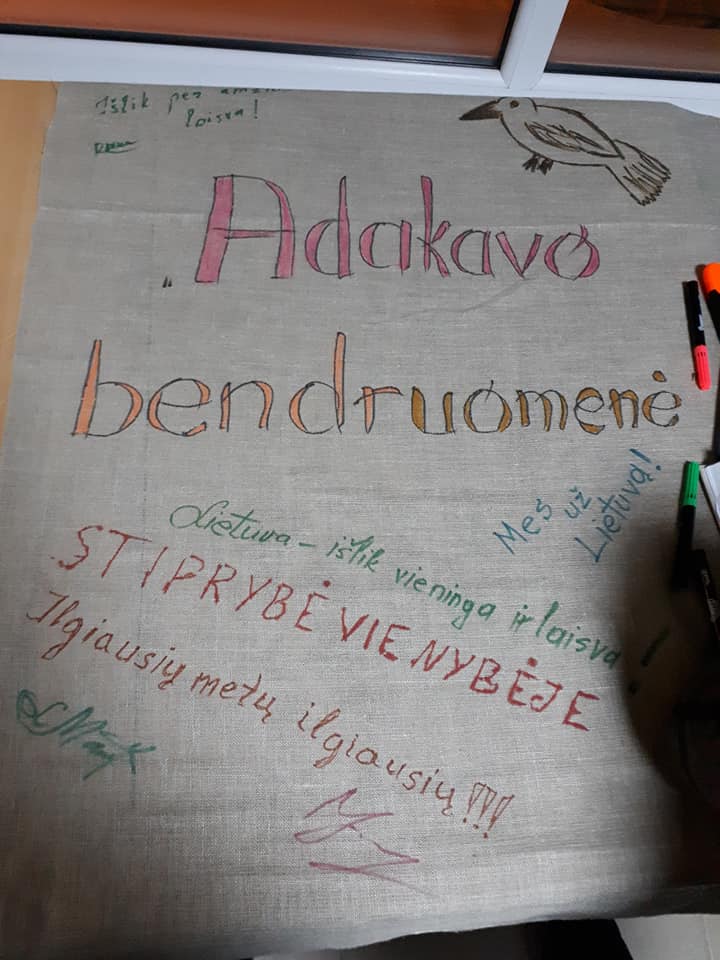 Išlik per
laisva!
„Adakavo
bendruomenė
Meš
už
Lietuvą!
Lietuva – išlik vieninga ir laisva!
STIPRYBĖ VIENYBĖJE
Ilgiausių metų ilgiausių!!!